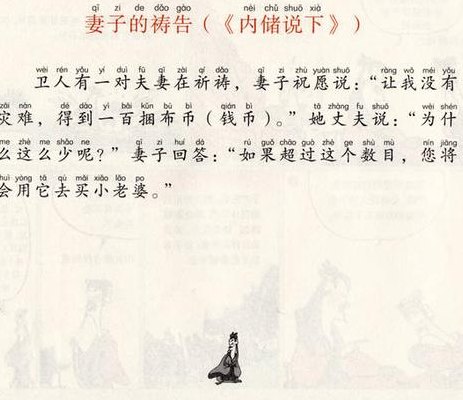 qī zi de dǎo gào nèi chǔ shuō xià
妻子的祷告（《内储说下》）
wèi rén yǒu yí duì fū qī zài qí dǎo qī zi zhù yuàn shuō ràng wǒ méi yǒu
卫人有一对夫妻在祈祷，妻子祝愿说：“让我没有
zāi nàn dé dào yì bǎi kǔn bù bì qián bì tā zhàng fu shuō wèi shén
灾难，得到一百捆布币（钱币）。”她丈夫说：“为什
me zhè me shǎo ne qī zi huí dá rú guǒ chāo guò zhè ge shù mù nín jiāng
么这么少呢？”妻子回答：“如果超过这个数目，您将
huì yòng tā qù mǎi xiǎo lǎo po
会用它去买小老婆。”